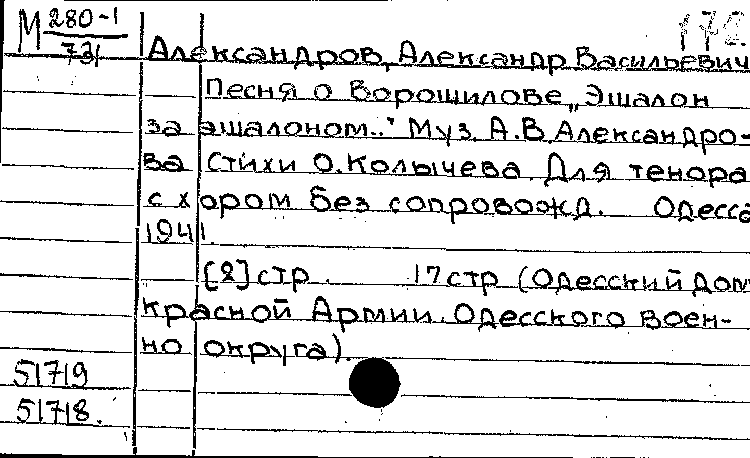 М 280-1
73
Александров, Александр Васильевич
Песня о Ворошилове „Эшалон
за эшалоном.." Муз. А.В.Александро-
ва Стихи О.Колычева. Для тенора
с хором без сопровожд. Одесса
1941.
[2]стр. 17стр (Одесский Дом
Красной Армии Одесского Воен-
но округа).
51719
51718.